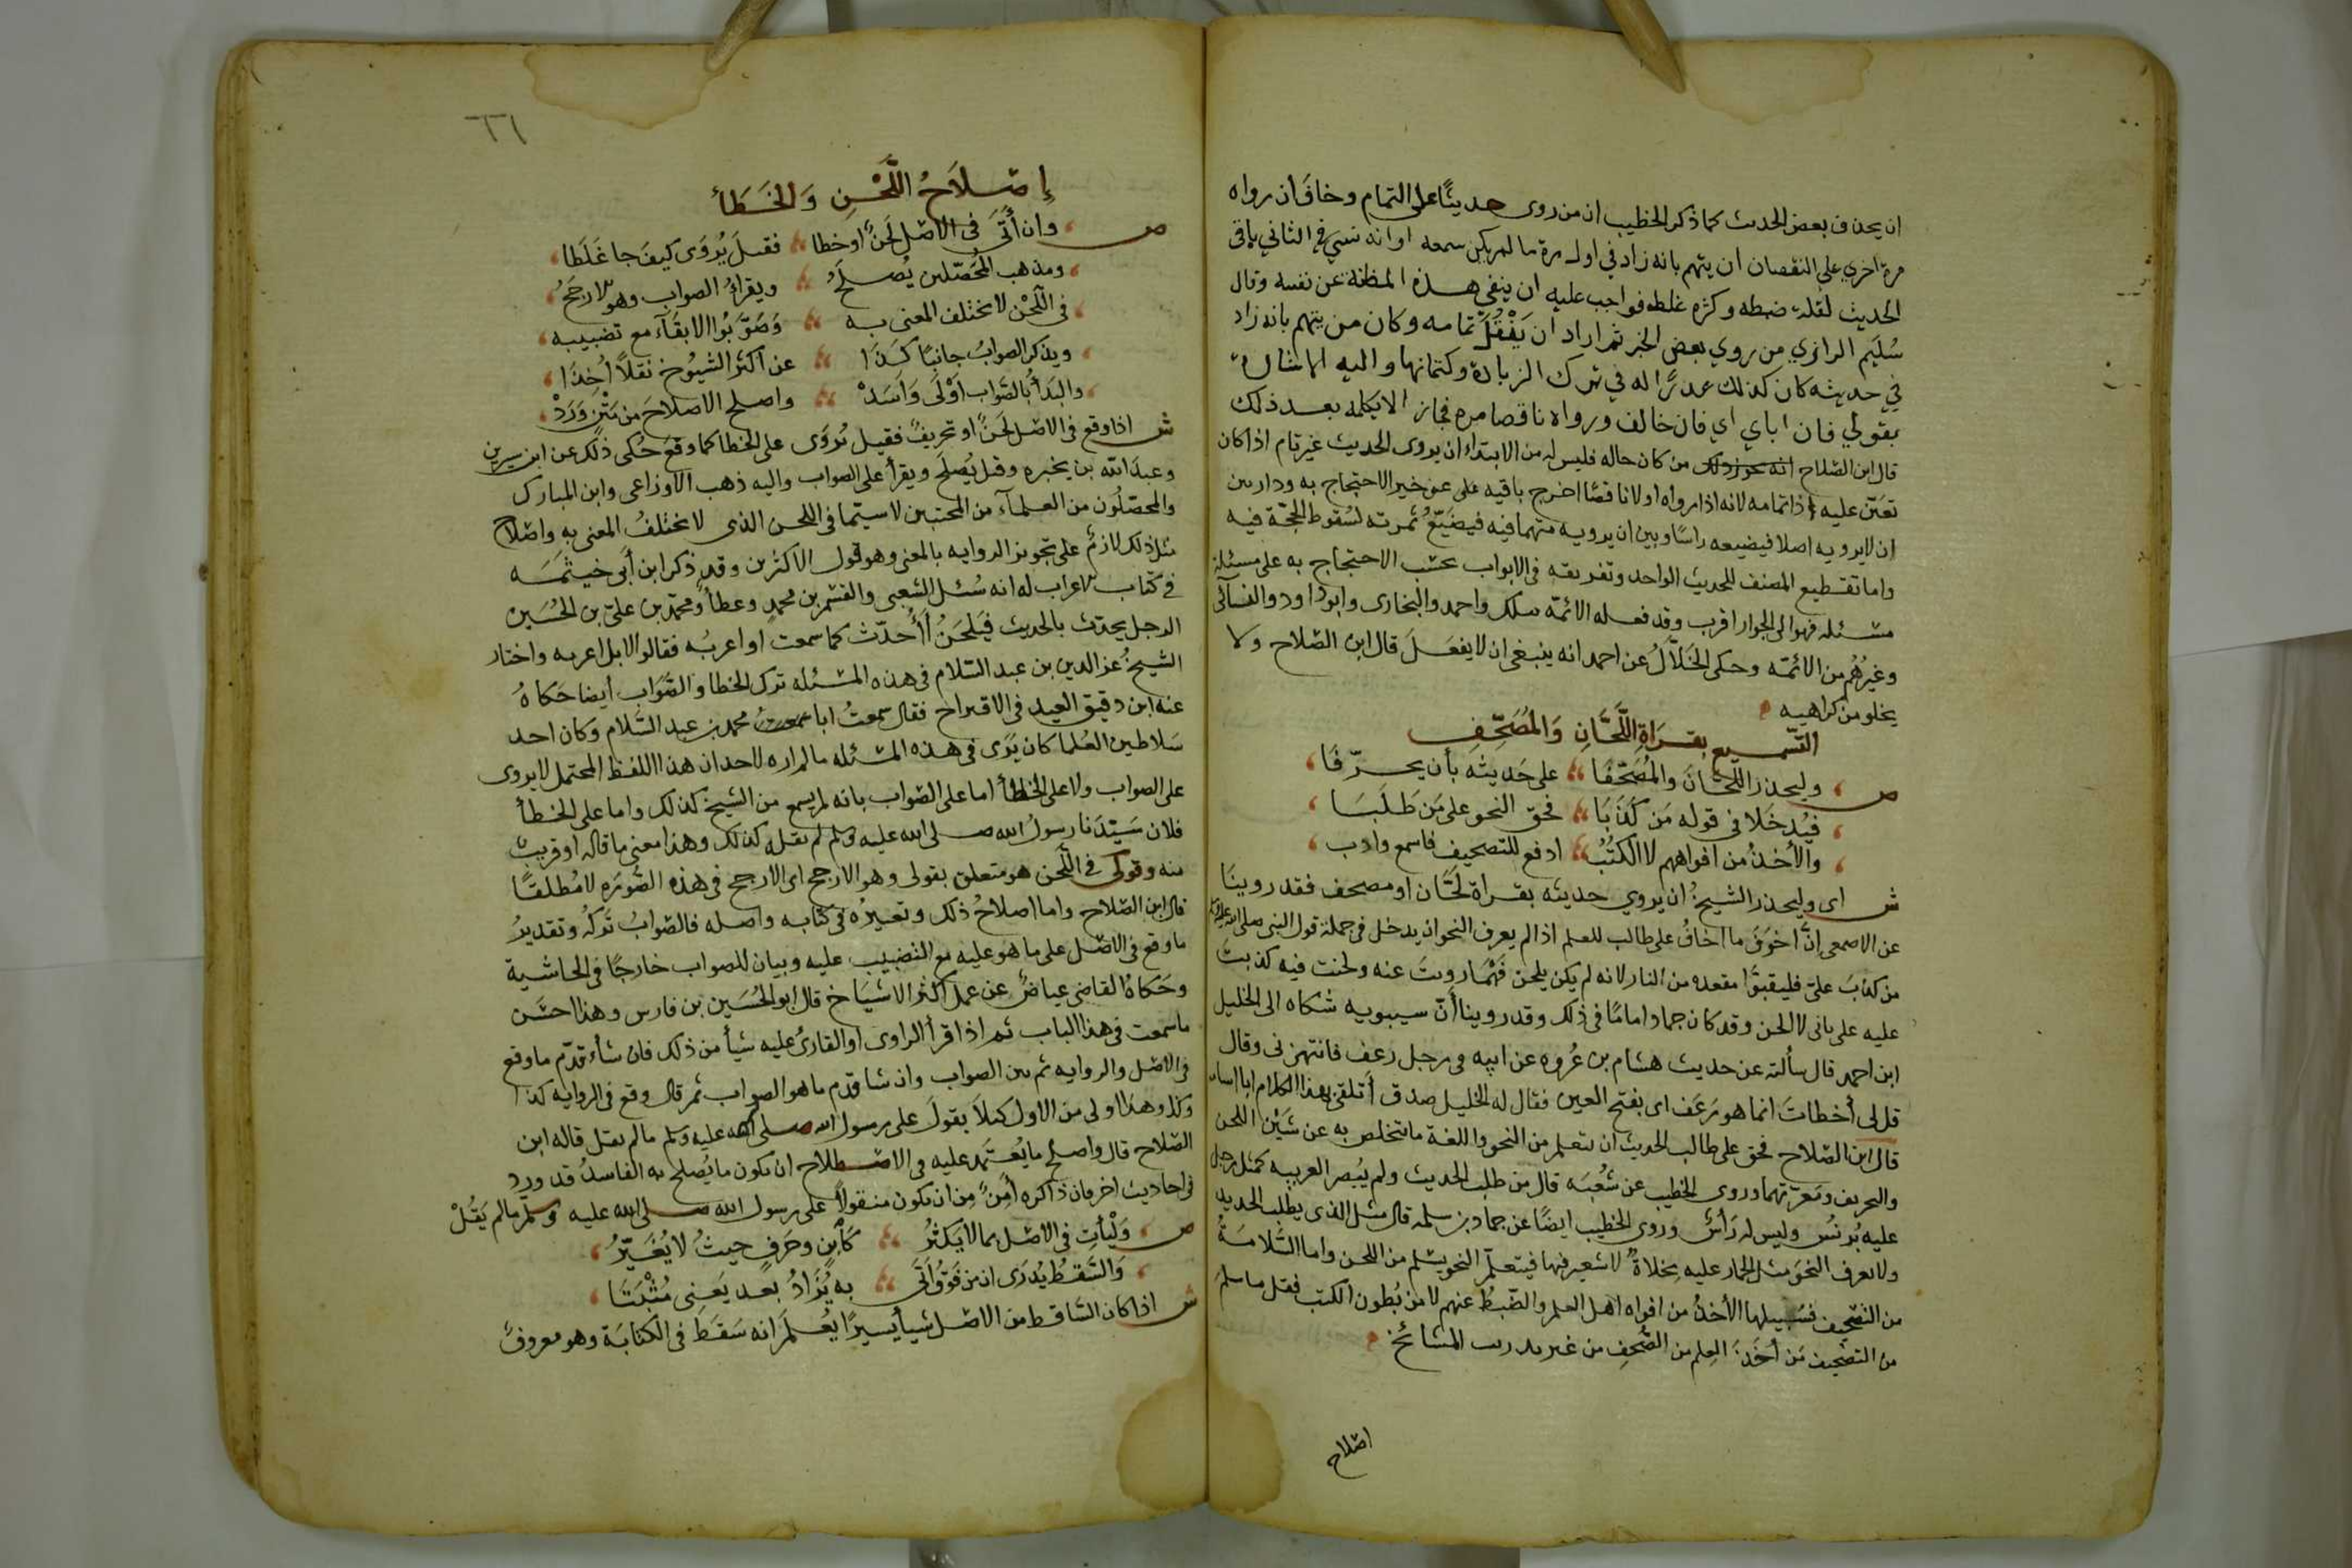 ان يحذف بعض الحديث كما ذكر الخطيب ان من روى حديثًا على التمام وخاف ان رواه
مرة اخري على النقصان ان يتهم بانه زاد في اول مرة ما لم يكن سمعه او انه نسي في الثاني باقي
الحديث لقلة ضبطه وكثرة غلطه فواجب عليه ان ينفي هذه المظنة عن نفسه وقال
سُلَيم الرازي من روي بعض الخبر ثم اراد ان يَنْقُلَ تمامه وكان من يتهم بانه زاد
في حديثه كان كذلك عذرًا له في ترك الزيادة وكتمانها واليه الاشارة
بقولي فان اباي اي فان خالف ورواه ناقصا مره فجاز الا يكمله بعد ذلك
قال ابن الصلاح من كان حاله فليس له من الابتداء ان يروى الحديث غير تام اذا كان
تعيّن عليه اذا تمامه لانه اذا رواه اولا ناقصًا اخرج باقيه عن حيز الاحتجاج به ودار بين
ان لا يرويه اصلا فيضيعه راسًا وبين ان يرويه متهما فيه فيضيّعُ ثمرته لسقوط الحجّة فيه
واما تقطيع المصنف للحديث الواحد وتفريقه فى الابواب بحسب الاحتجاج به على مسئلة
مسئلة فهو الى الجواز اقرب وقد فعله الائمة ملك واحمد والبخارى وابوداود والنسآئى
وغيرُهُم من الائمّه وحكى الخَلَّالُ عن احمد انه ينبغى ان لا يفعَلَ قال ابن الصّلاح ولا
يخلو من كراهيه
التّسميع بقرَاةِ اللَّحَّانِ وَالمُصَحِّفِ
ص وليحذر اللَّحّانَ والمُصَحِّفَا على حَديثه بأن يحرّفَا
فيُدخَلَا فى قوله مَن كَذَبَا فحقّ النحو على مَن طَلَبَا
والأخذُ من افواههم لا الكتُبْ ادفع للتصحيف فاسمع وادب
ش اى وليحذر الشيخُ ان يروي حديثه بقراة لَحَّان او مصحف فقد روينَا
عن الاصمعى إنّ اخوَفَ ما اخافُ على طالب العلم اذا لم يعرف النحو ان يدخل فى جملة قول النبى صلى الله عليه وسلم
من كذبَ علىّ فليتبوّا مقعده من النار لانه لم يكن يلحن فَهْمَا رويتَ عنه ولحنت فيه كذبتَ
عليه على بانى لا الحن وقد كان حماد امامًا فى ذلك وقد روينا أنّ سيبويه شكاه الى الخليل
ابن احمد قال سألته عن حديث هشام بن عُروه عن ابيه فى رجل رعف فانتهرنى وقال
قل لى أخطاتَ انما هو رَعَف اى بفتح العين فقال له الخليل صدق أتلقى بهذا الكلام ابا اسامه
قال ابن الصّلاح فحق على طالب الحديث ان يتعلم من النحو واللغة ما يتخلص به عن شَيْن اللحن
والتحريف ومَعرّتهما وروى الخطيب عن شُعْبَه قال من طلب الحديث ولم يُبصر العربيه كمثل رجل
عليه بُرنسُ وليس له رَأسُ وروى الخطيب ايضًا عن حماد بن سلمه قال مثل الذى يطلب الحديث
ولا يعرف النحوَ مثل الحمار عليه مِخلاةٌ لا شعير فيها فيتعلّم النحو يسلم من اللحن واما السّلامَةُ
من التصحِيف فسَبيلها الأخذُ من افواه اهل العلم والضّبطُ عنهم لا من بُطون الكتب فقل ما سلمَ
من التصْحيف مَن أخَذَ العِلم من الصُّحف من غير تدريب المشائخ
اصلاح
٦٦
إصْلَاحُ اللَّحْنِ وَالخَطَأ
ص وان أتَى فى الاصْل لَحنٌ او خطا فقيلَ يُروَى كيفَ جا غَلَطَا
ومذهب المحَصّلين يُصلَحُ ويقرأُ الصواب وهو الارجَحُ
فى اللّحْن لا يختلف المعنى به وَصَوّبُوا الابقَآء مع تضبيبه
ويذكر الصوابُ جانبًا كَذَا عن اكثر الشيُوخ نقلًا أُخِذَا
والبَدأ بالصَّواب اَوْلَى وَاَسَدْ واصلح الاصلاحَ من مَتْنٍ وَرَدْ
ش اذا وقع فى الاصْل لَحنٌ او تحريفٌ فقيل يُروَى على الخطا كما وقعَ حُكى ذلك عن ابن سيرين
وعبد الله بن يخبره وقيل يُصلَحَ ويقرأ على الصواب واليه ذهب الاوزاعى وابن المبارك
والمحصّلُون من العلمآء من المحدثين لا سيّما فى اللحن الذى لا يختلفُ المعنى به واصْلاح
مثل ذلك لازمٌ على تجويز الروايه بالمعنى وهو قول الاكثرين وقد ذكر ابن أبى خيثمَه
فى كتاب الاعراب له انه سُئل الشعبى والقسم بن محمدٍ وعطأ ومحمّد بن علىّ بن الحُسَين
الرجل يحدّث بالحديث فيَلحَنُ أَأُحدّث كما سمعت او اعربُه فقالوا لا بل اعربه واختار
الشيخُ عز الدين بن عبد السّلام فى هذه المسئله ترك الخطا والصَّوَاب أيضا حَكاهُ
عنه ابن دقيق العيد فى الاقتراح فقال سمعتُ ابا محمد بن عبد السَّلام وكان احد
سَلاطين العُلما كان يَرَى فى هذه المسئله ما لم اره لاحد ان هذا اللفظ المحتمل لا يروى
على الصواب ولا على الخطأ اما على الصّواب بانه لم يسمع من الشيخ كذلك واما على الخطأ
فلان سَيّدَنا رسولُ الله صلى الله عليه وسلم لم يقله كذلك وهذا معنى ما قاله او قريبٌ
منه وقولى فى اللَّحن هو متعلق بقولى وهو الارجح اى الارجح فى هذه الصُّورَه لا مُطلقًا
قال ابن الصّلاح واما اصلاحُ ذلك وتغييرُه فى كتابه واصله فالصّوابُ تَركهُ وتقديرُ
ما وقع فى الاصْل على ما هو عليه مع التضبيب عليه وبيان للصواب خارجًا فى الحاشية
وحَكاهُ القاضى عياضٌ عن عمل اكثر الاشيَاخ قال ابو الحُسَين بن فارس وهذا احسَن
ما سمعت فى هذا الباب ثم اذا قرأ الراوى او القارئُ عليه شيأ من ذلك فان شأء قدّم ما وقع
فى الاصْل والروايه ثم بين الصواب وان شا قدّم ما هو الصواب ثم قال وقع فى الروايه كذا
وكذا وهذا اولى من الاول كيلَا يقولَ على رسول الله صلى الله عليه وسلم ما لم يقل قاله ابن
الصّلاح قال واصلح ما يُعتَمد عليه فى الاصطلاح ان يكون ما يُصلح به الفاسدُ قد ورد
فى احاديث اخر فان ذاكره أمِنٌ مِن ان يكون منقولاً على رسول الله صلى الله عليه وسلم ما لم يَقُلْ
ص وَلْيأتِ فى الاصْل بما لا يَكثُرُ كَأبنٍ وحَرفٍ حيثُ لا يُغَيّرُ
وَالسَّقطُ يُدرَى ان من فَوقُ أتَى به يُزَادُ بعد يَعنِى مُثْبَتَا
ش اذا كان السَّاقط من الاصْل شيأ يسيرًا يُعلَمُ انه سَقَطَ فى الكتابَة وهو معروفٌ